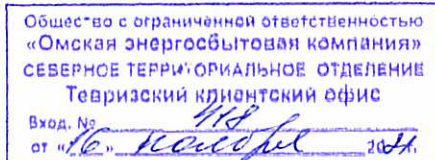 Общество с ограниченной ответственностью
«Омская энергосбытовая компания»
СЕВЕРНОЕ ТЕРРИТОРИАЛЬНОЕ ОТДЕЛЕНИЕ
Тевризский клиентский офис
Вход. № 418
от «16» ноября 2021г.